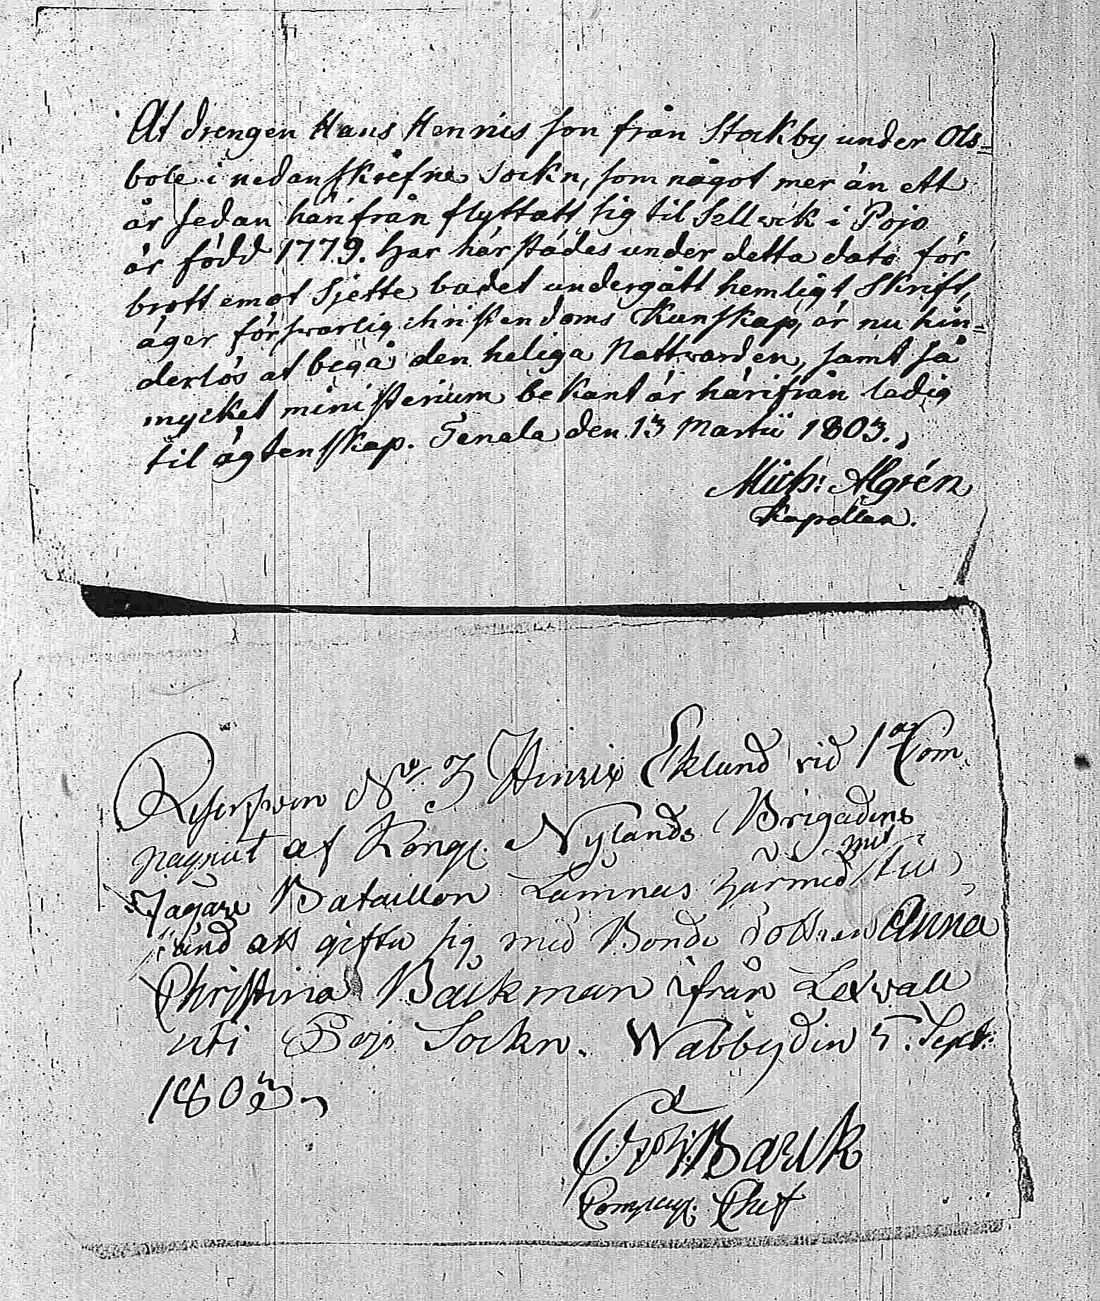 At drengen Hans Henrics son från Stockby under Ols=
böle i nedanskrefne Sockn, som något mer än ett
år sedan härifrån flyttatt sig til Sellvik i Pojo
är född 1779. Har härstädes under detta dato för
brott emot Sjette budet undergått hemligt Skrift,
äger försvarlig christendoms Kunskap, är nu hin=
derlös at begå den heliga Nattvarden, samt så
mycket ministerium bekant är härifrån ledig
til ägtenskap. Tenala den 13 Martii 1803.
Mich: Algrén
Kapellan.
Reserven No 3 Hinrix Eklund vid 1a Com
pagniet af Kongl. Nylands Brigadens
Jägare Bataillon Lämnas härmed mit till
stånd att gifta sig med Bonde dottren Anna
Christina Bäckman ifrån Lexvall
uti Pojo Sockn. Wabby din 5. Sept:
1803
Barck
Compagn. Chef